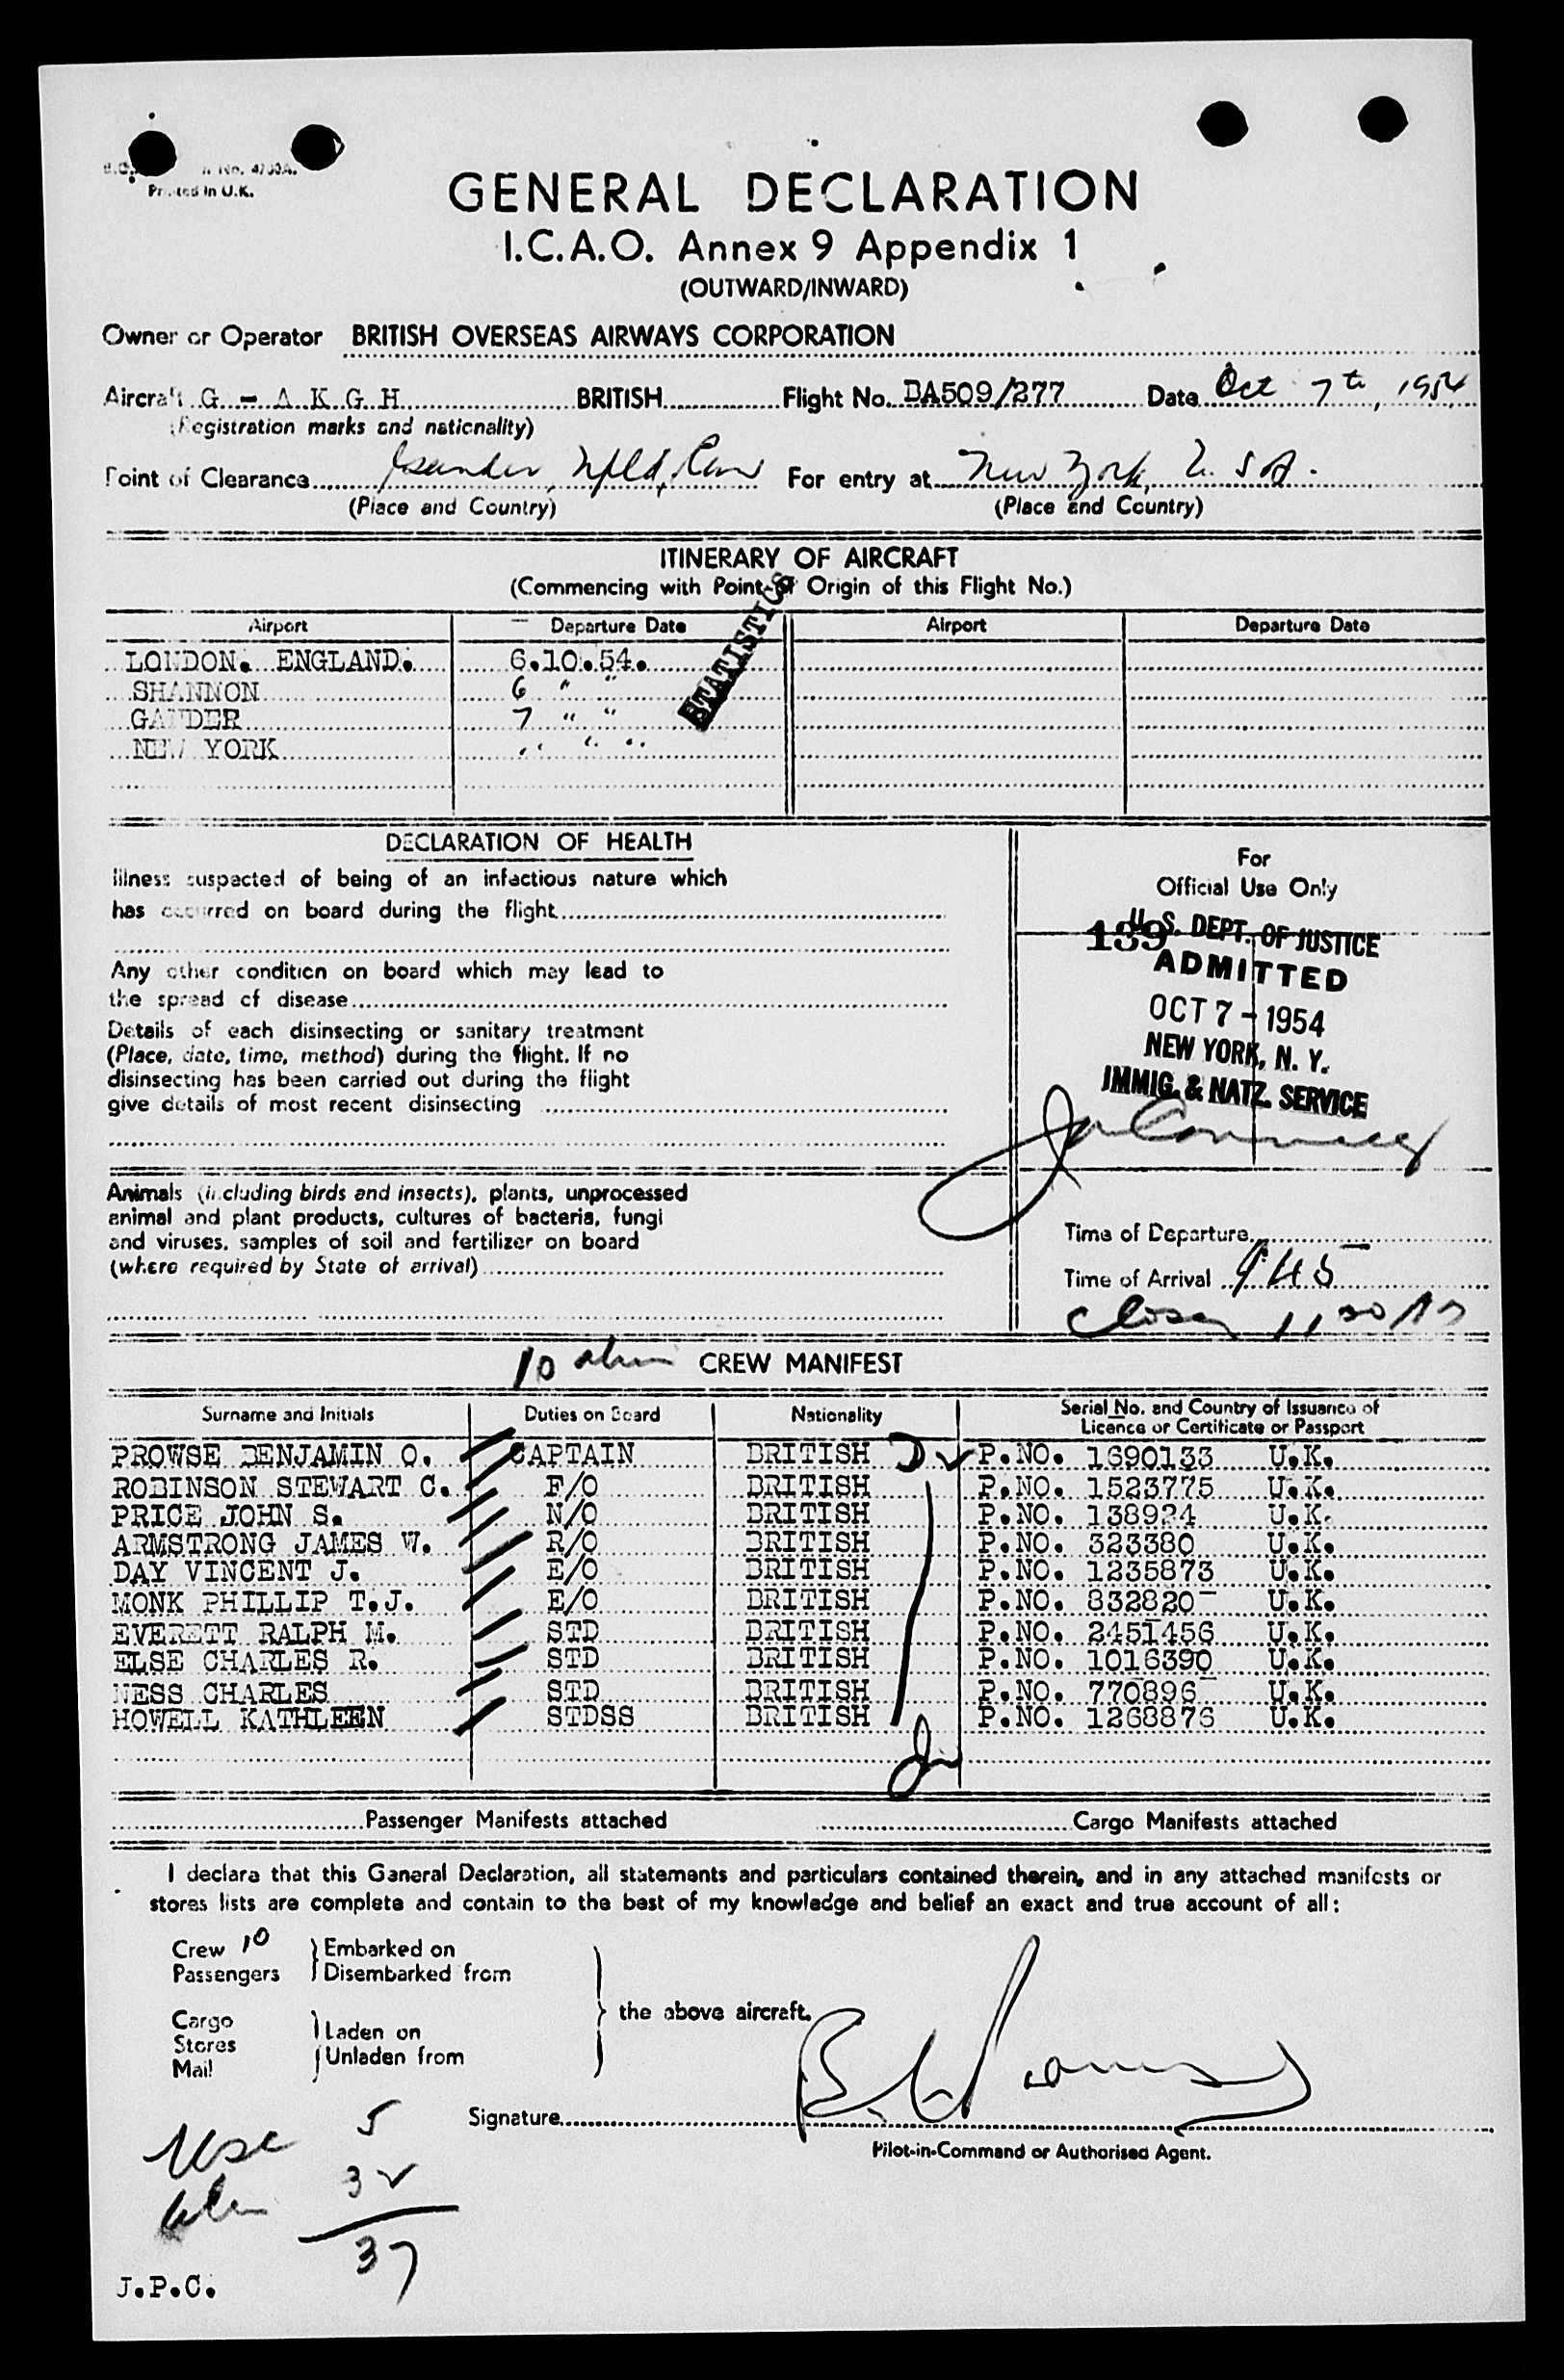 Printed in U.K.
GENERAL DECLARATION
I.C.A.O. Annex 9 Appendix 1
(OUTWARD/INWARD)
Owner or Operator BRITISH OVERSEAS AIRWAYS CORPORATION
Aircraft G - A K G H BRITISH Flight No. BA509/277 Date Oct 7th, 1954
(Registration marks and nationality)
Point of Clearance Gander, Nfld, Can For entry at New York, U.S.A.
(Place and Country) (Place and Country)
ITINERARY OF AIRCRAFT
(Commencing with Point of Origin of this Flight No.)
STATISTICS
Airport Departure Date Airport Departure Date
LONDON. ENGLAND. 6.10.54.
SHANNON 6 " "
GANDER 7 " "
NEW YORK " " "
DECLARATION OF HEALTH
Illness suspected of being of an infectious nature which
has occurred on board during the flight
Any other condition on board which may lead to
the spread of disease
Details of each disinsecting or sanitary treatment
(Place, date, time, method) during the flight. If no
disinsecting has been carried out during the flight
give details of most recent disinsecting
For
Official Use Only
139
U. S. DEPT. OF JUSTICE
ADMITTED
OCT 7 - 1954
NEW YORK, N. Y.
IMMIG. & NATZ. SERVICE
Animals (including birds and insects), plants, unprocessed
animal and plant products, cultures of bacteria, fungi
and viruses, samples of soil and fertilizer on board
(where required by State of arrival)
Time of Departure
Time of Arrival 945
10 alien CREW MANIFEST
Surname and Initials Duties on Board Nationality Serial No. and Country of Issuance of
Licence or Certificate or Passport
PROWSE BENJAMIN O. CAPTAIN BRITISH P.NO. 1690133 U.K.
ROBINSON STEWART C. F/O BRITISH P.NO. 1523775 U.K.
PRICE JOHN S. N/O BRITISH P.NO. 138924 U.K.
ARMSTRONG JAMES W. R/O BRITISH P.NO. 323380 U.K.
DAY VINCENT J. E/O BRITISH P.NO. 1235873 U.K.
MONK PHILLIP T.J. E/O BRITISH P.NO. 832820 U.K.
EVERETT RALPH M. STD BRITISH P.NO. 2451456 U.K.
ELSE CHARLES R. STD BRITISH P.NO. 1016390 U.K.
NESS CHARLES STD BRITISH P.NO. 770896 U.K.
HOWELL KATHLEEN STDSS BRITISH P.NO. 1268876 U.K.
Passenger Manifests attached Cargo Manifests attached
I declare that this General Declaration, all statements and particulars contained therein, and in any attached manifests or
stores lists are complete and contain to the best of my knowledge and belief an exact and true account of all:
Crew 10 Embarked on
Passengers Disembarked from
the above aircraft.
Cargo
Stores Laden on
Mail Unladen from
Signature
Pilot-in-Command or Authorised Agent.
USC 5
alien 32
37
J.P.C.